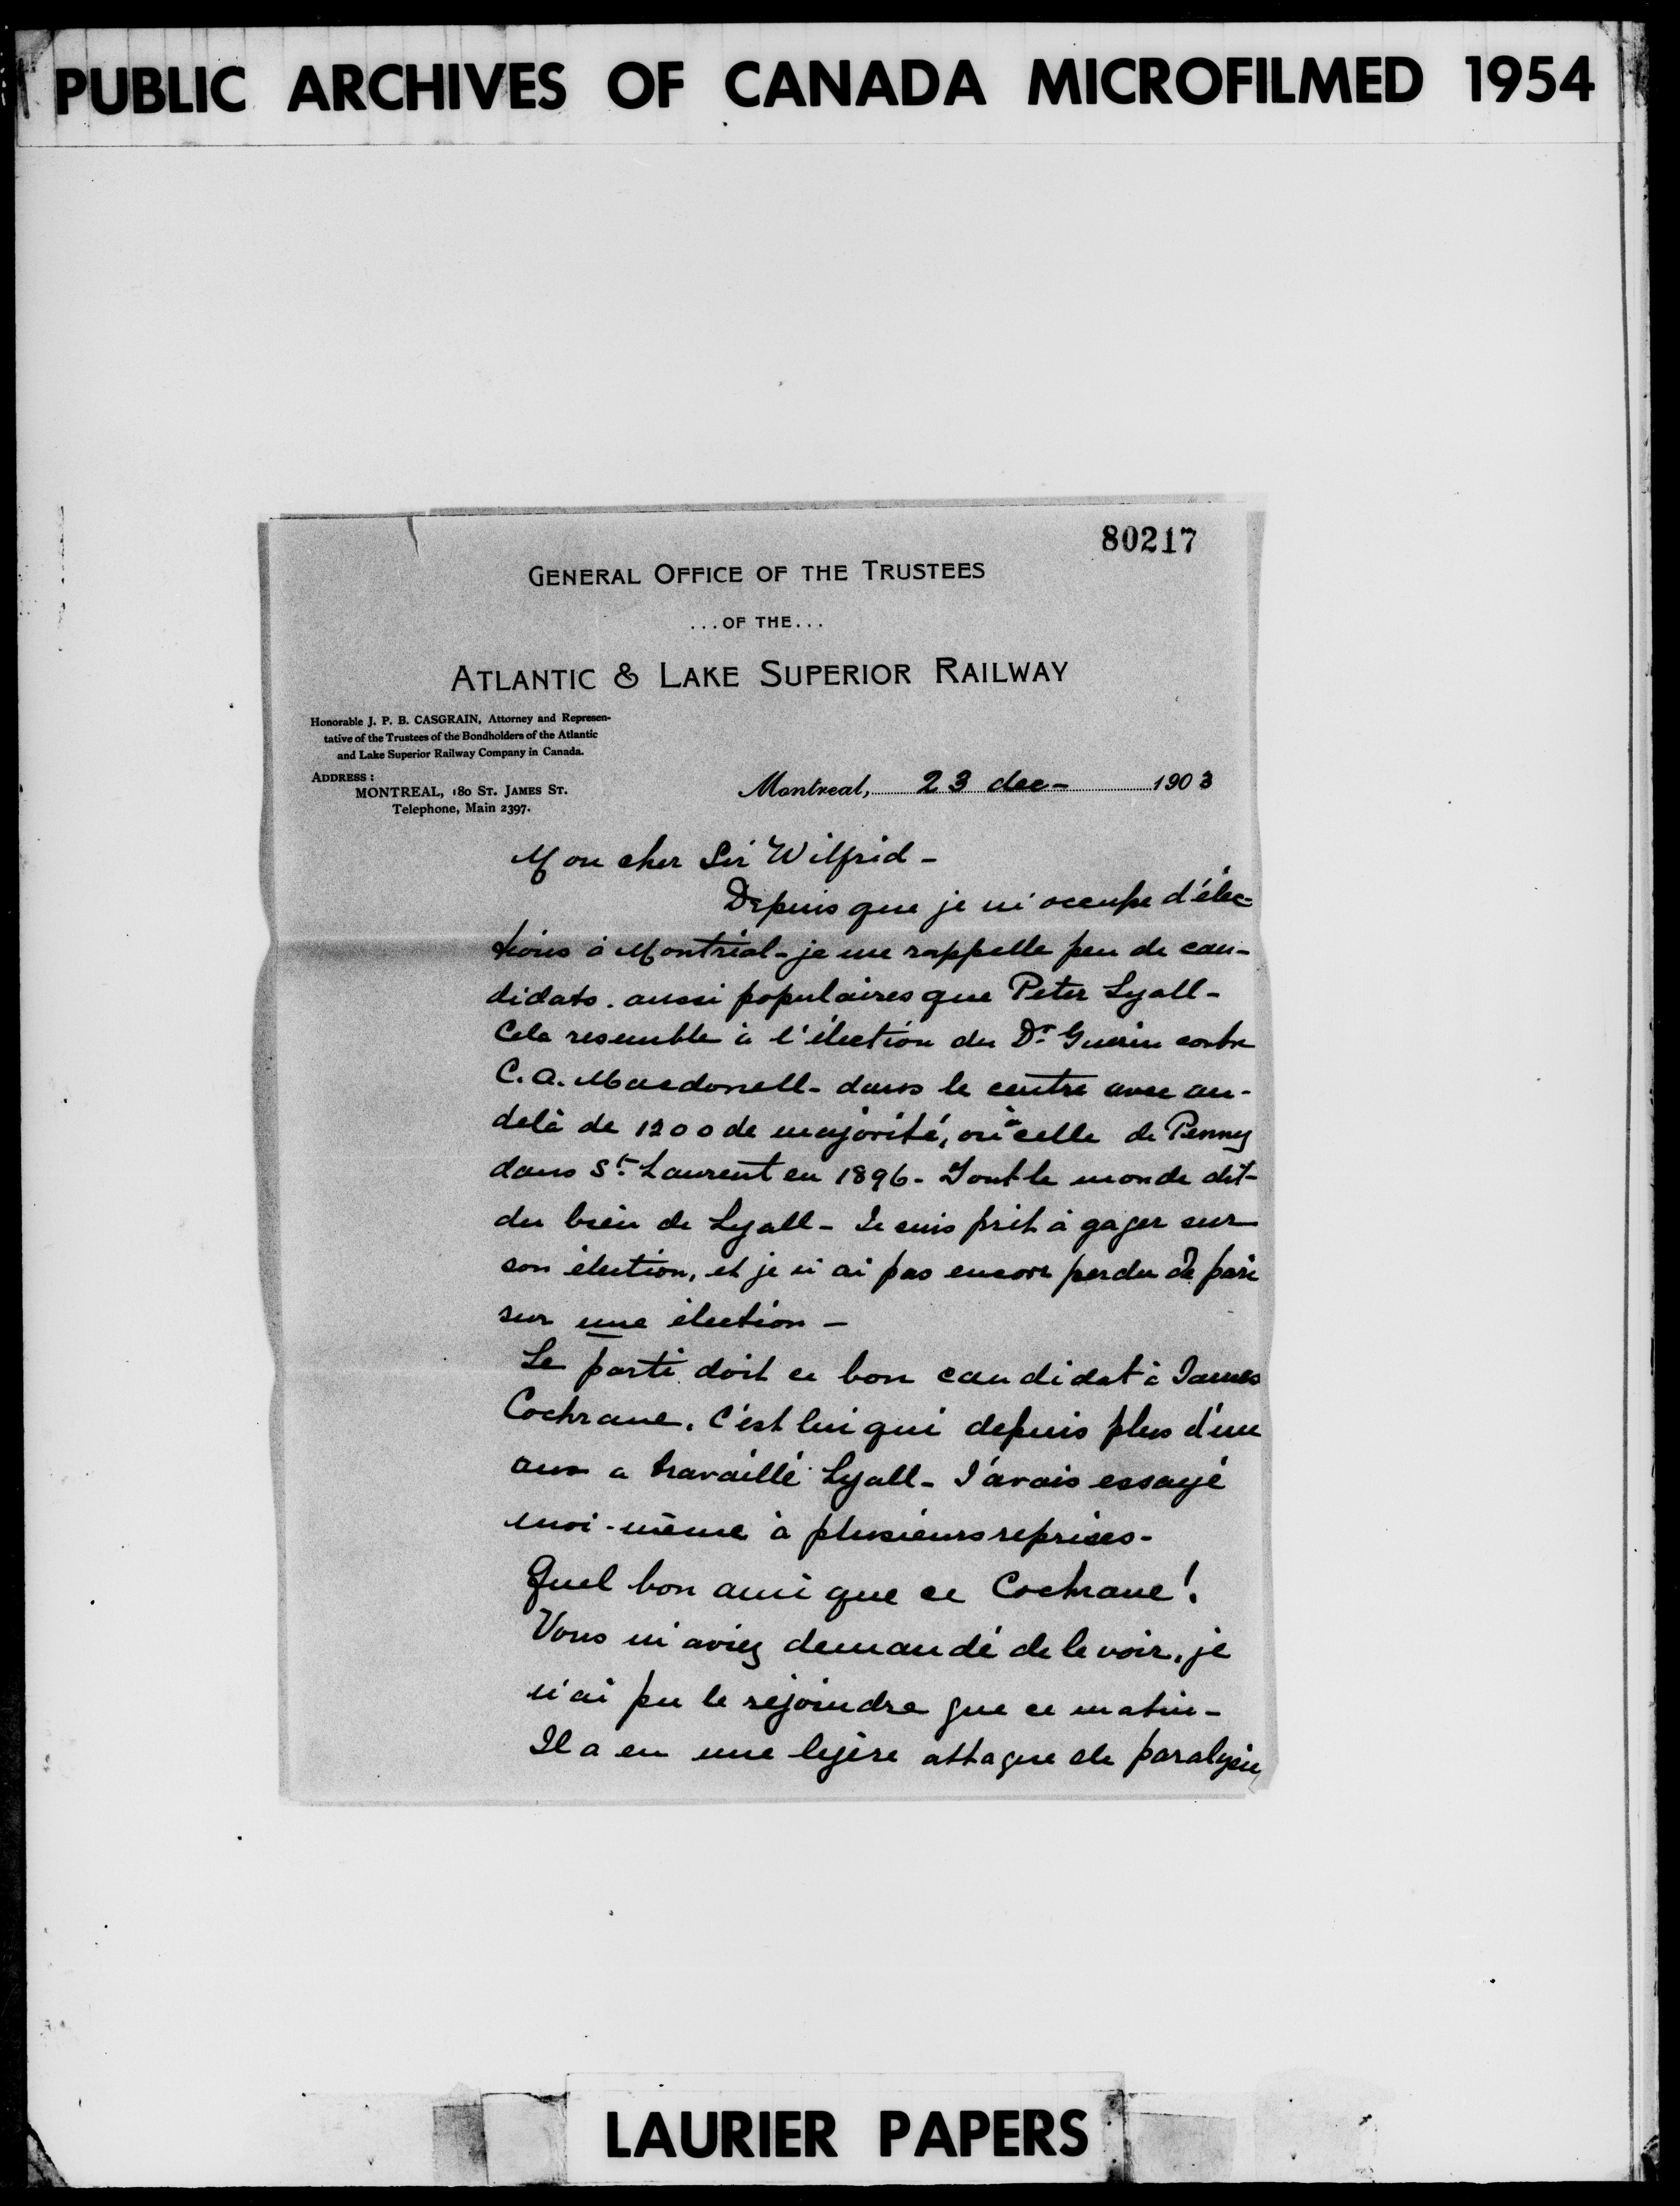 PUBLIC ARCHIVES OF CANADA MICROFILMED 1954
80217
GENERAL OFFICE OF THE TRUSTEES
...OF THE...
ATLANTIC & LAKE SUPERIOR RAILWAY
Honorable J. P. B. CASGRAIN, Attorney and Represen-
tative of the Trustees of the Bondholders of the Atlantic
and Lake Superior Railway Company in Canada.
ADDRESS:
MONTREAL, 180 ST. JAMES ST.
Telephone, Main 2397.
Montreal, 23 dec- 1903
Mon cher Sir Wilfrid -
Depuis que je m'occupe d'élec-
tions à Montréal - je me rappelle peu de can-
didats. aussi populaires que Peter Lyall -
Cela resemble à l'élection du Dr Guerin contre
C.A. Macdonell - dans le centre avec au-
delà de 1200 de majorité, ou à celle de Penny
dans St. Laurent en 1896 - Tout le monde dit
du bien de Lyall - Je suis prêt à gager sur
son élection, et je n'ai pas encore perdu de pari
sur une élection -
Le parti doit ce bon candidat à James
Cochrane. C'est lui qui depuis plus d'un
an a travaillé Lyall - J'avais essayé
moi-même à plusieurs reprises -
Quel bon ami que ce Cochrane!
Vous m'aviez demandé de le voir, je
n'ai pu le rejoindre que ce matin -
Il a eu une legère attaque de paralysie
LAURIER PAPERS